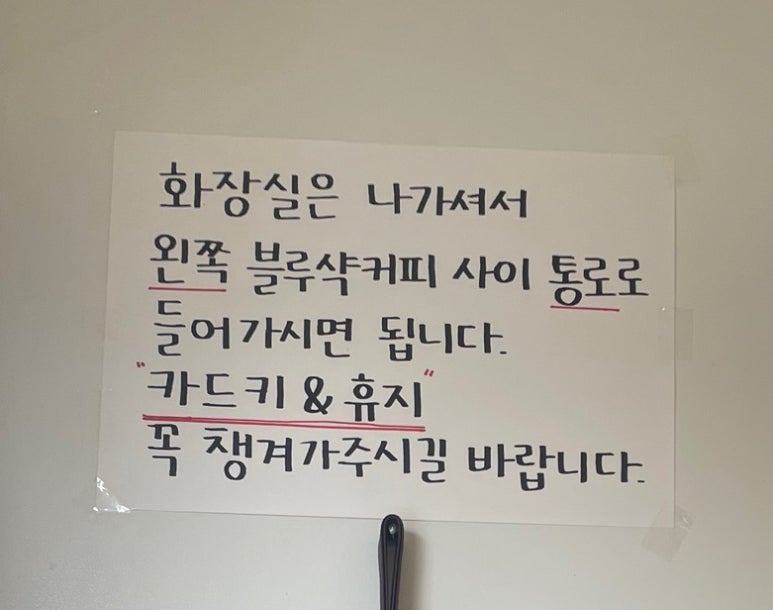 화장실은 나가셔서
왼쪽 블루샥커피 사이 통로로
들어가시면 됩니다.
"카드키 & 휴지"
꼭 챙겨가주시길 바랍니다.